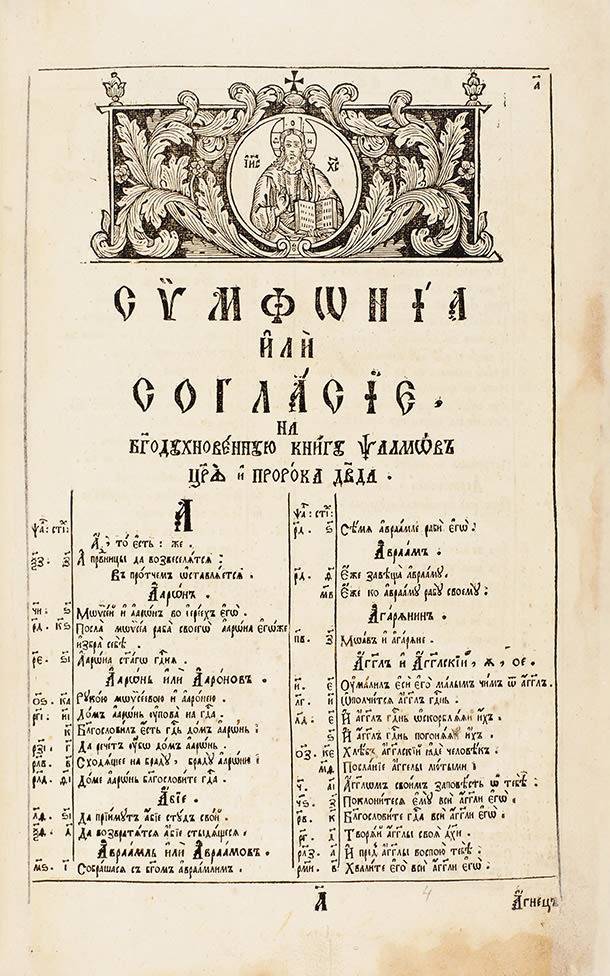 а҃
І҆И҃С Х҃С
СѴМФѠНІ́А
И҆ЛЍ
СОГЛА́СІЕ,
НА
БГ҃ОДꙋХНОВЕ́ННꙋЮ КНИ́Гꙋ ѰАЛМѠ́ВЪ
ЦРѦ̀ И҆ ПРОРО́КА ДВ҃ДА .
А
А҆, то є҆сть : же .
ѯ҃з г҃ А҆ првⷣницы да возвеселѧтсѧ :
Въ протчемъ ѡ҆ставлѧетсѧ .
А҆арѡ́нъ .
ч҃и ѕ҃ Мѡѷсе́й и҆ а҆арѡ́нъ во і҆ере́ехъ є҆гѡ̀ .
р҃д к҃ѕ Посла̀ мѡѷсе́а раба̀ своего̀ а҆арѡ́на є҆го́же
и҆збра̀ себѣ̀ .
р҃е ѕ҃і А҆арѡ́на ст҃а́го гдⷭ҇нѧ .
А҆арѡ́нь и҆лѝ А҆арѡ́новъ .
о҃ѕ к҃а Рꙋко́ю мѡѷсе́овою и҆ а҆арѡ́нею .
р҃гі и҃і До́мъ а҆арѡ́нь ᲂу҆пова̀ на гдⷭ҇а .
к҃ Бл҃гослови́лъ є҆́сть гдⷭ҇ь до́мъ а҆арѡ́нь :
р҃зі г҃ Да рече́тъ ᲂу҆́бѡ до́мъ а҆арѡ́нь .
р҃лв в҃ Сходѧ́щее на браду̀, браду̀ а҆арѡ́ню :
р҃лд ѳ҃і До́ме а҆арѡ́нь бл҃гослови́те гдⷭ҇а .
А҆́бїе .
л҃ѳ ѕ҃і Да прїи́мутъ а҆́бїе стꙋ́дъ сво́й .
ѯ҃ѳ д҃ Да возвратѧ́тсѧ а҆́бїе стыдѧ́щесѧ .
А҆враа́мль и҆лѝ А҆враа́мовъ .
м҃ѕ і҃ Собра́шасѧ съ бг҃омъ а҆враа́млимъ .
ѱа҃ : сти҃ :
р҃д ѕ҃ Сѣ́мѧ а҆враа́мле рабѝ є҆гѡ̀ :
А҆враа́мъ .
р҃д ѳ҃ Є҆́же завѣща̀ а҆враа́мꙋ .
м҃в Є҆́же ко а҆враа́мꙋ рабꙋ̀ своемꙋ̀ :
А҆гарѧ́нинъ .
п҃в з҃ Мѡа́въ и҆ а҆гарѧ́не .
А҆́гг҃лъ и҆ А҆́гг҃лскїй, ѧ, ое .
и҃ ѕ҃ Оу҆ма́лилъ є҆сѝ є҆го̀ ма́лымъ чи́мъ ѿ а҆́гг҃лъ .
л҃г и҃ Ѡ҆полчи́тсѧ а҆́гг҃лъ гдⷭ҇нь .
л҃д є҃ И҆ а҆́гг҃лъ гдⷭ҇нь ѡ҆скорблѧ́ѧй и҆́хъ .
ѕ҃ И҆ а҆́гг҃лъ гдⷭ҇нь погонѧ́ѧй и҆́хъ .
о҃з к҃є Хлѣ́бъ а҆́гг҃лскїй ꙗ҆дѐ человѣ́къ .
м҃ѳ Посла́нїе а҆́ггелы лю́тыми :
ч҃ а҃і А҆́гг҃лѡмъ свои́мъ заповѣ́сть ѡ҆ тебѣ̀ :
ч҃ѕ з҃ Поклони́тесѧ є҆мꙋ̀ всѝ а҆́гг҃ли є҆гѡ̀ .
р҃в к҃ Бл҃гослови́те гдⷭ҇а всѝ а҆́гг҃ли є҆гѡ̀ .
р҃г д҃ Творѧ́й а҆́гг҃лы своѧ̀ дх҃и .
р҃лз а҃ И҆ пред̾ а҆́гг҃лы воспою̀ тебѣ̀ :
р҃ми в҃ Хвали́те є҆го̀ всѝ а҆́гг҃ли є҆гѡ̀ :
А҃
4
А҆́гнецъ